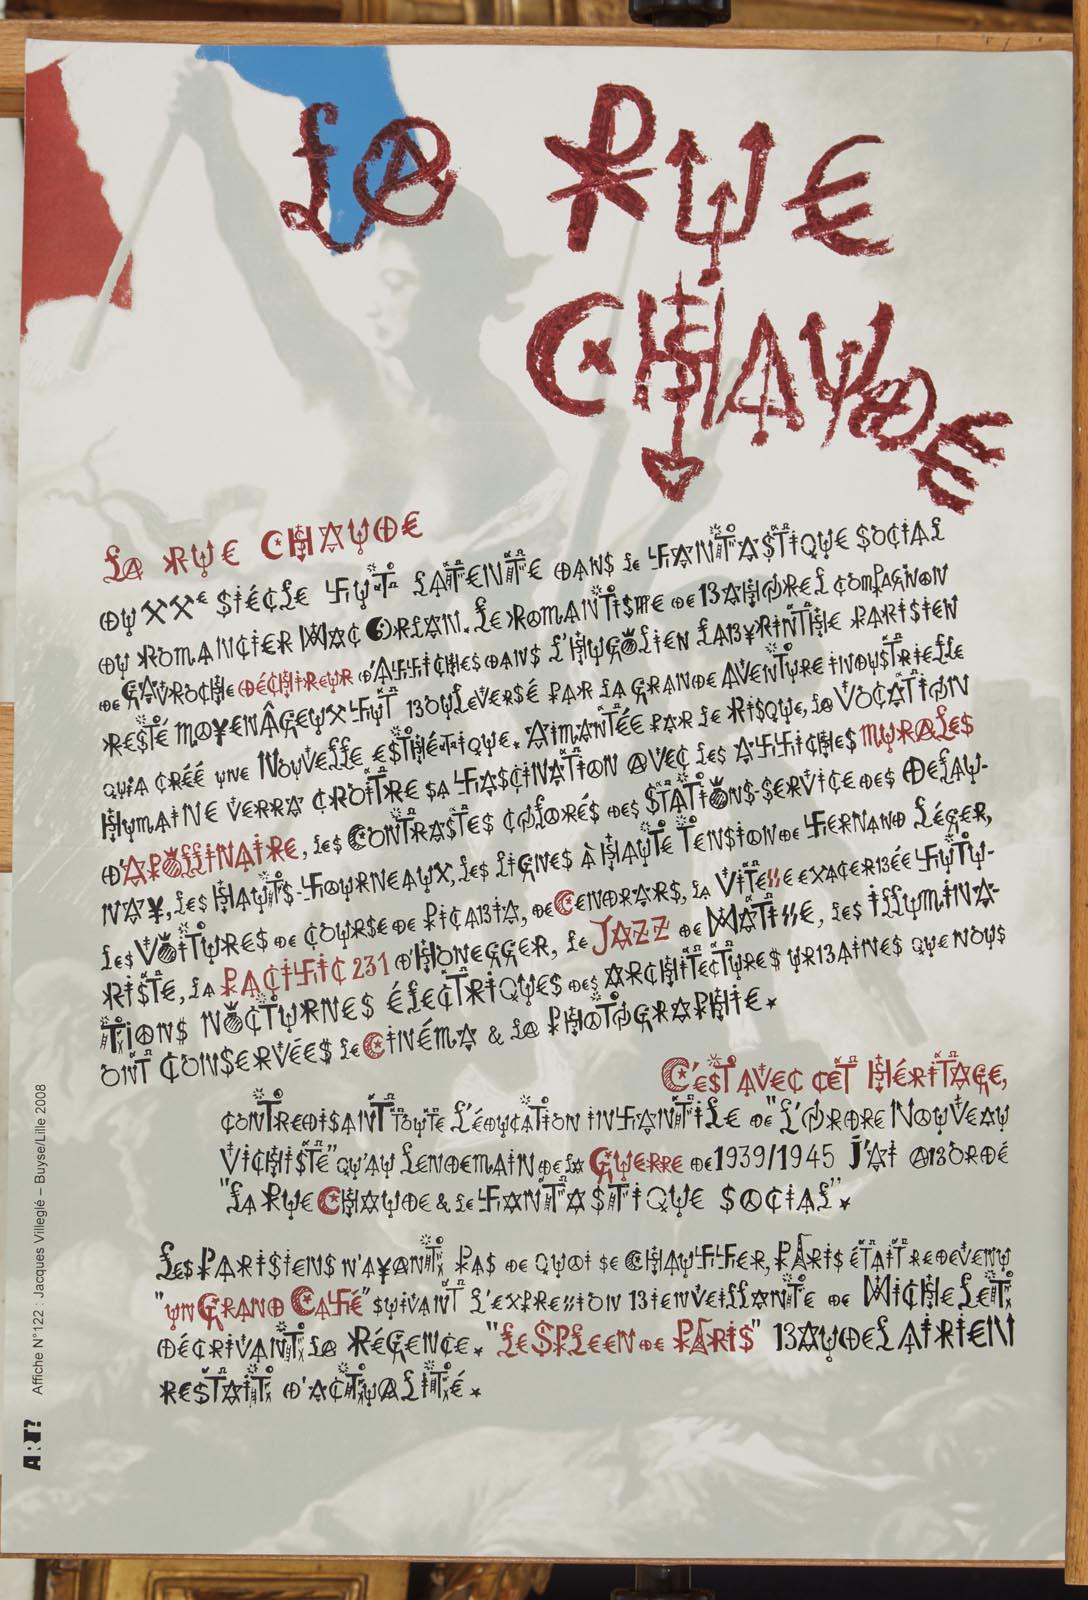 LA RUE
CHAUDE
LA RUE CHAUDE
DU XXe SIÉCLE FUT LATENTE DANS LE FANTASTIQUE SOCIAL
DU ROMANCIER MAC ORLAN. LE ROMANTISME DE BAHOREL COMPAGNON
DE GAVROCHE DÉCHIREUR D'AFFICHES DANS L'HUGOLIEN LABYRINTHE PARISIEN
RESTÉ MOYENÂGEUX FUT BOULEVERSÉ PAR LA GRANDE AVENTURE INDUSTRIELLE
QUI A CRÉÉ UNE NOUVELLE ESTHÉTIQUE. AIMANTÉE PAR LE RISQUE, LA VOCATION
HUMAINE VERRA CROITRE SA FASCINATION AVEC LES AFFICHES MURALES
D'APOLLINAIRE, LES CONTRASTES COLORÉS DES STATIONS-SERVICE DES DELAU-
NAY, LES HAUTS-FOURNEAUX, LES LIGNES À HAUTE TENSION DE FERNAND LÉGER,
LES VOITURES DE COURSE DE PICABIA, DE CENDRARS, LA VITESSE EXACERBÉE FUTU-
RISTE, LA PACIFIC 231 D'HONEGGER, LE JAZZ DE MATISSE, LES ILLUMINA-
TIONS NOCTURNES ÉLECTRIQUES DES ARCHITECTURES URBAINES QUE NOUS
ONT CONSERVÉES LE CINÉMA & LA PHOTOGRAPHIE.
C'EST AVEC CET HÉRITAGE,
CONTREDISANT TOUTE L'ÉDUCATION INFANTILE DE "L'ORDRE NOUVEAU
VICHISTE" QU'AU LENDEMAIN DE LA GUERRE DE 1939/1945 J'AI ABORDÉ
"LA RUE CHAUDE & LE FANTASTIQUE SOCIAL".
LES PARISIENS N'AYANT PAS DE QUOI SE CHAUFFER, PARIS ÉTAIT REDEVENU
"UN GRAND CAFÉ" SUIVANT L'EXPRESSION BIENVEILLANTE DE MICHELET
DÉCRIVANT LA RÉGENCE. "LE SPLEEN DE PARIS" BAUDELAIRIEN
RESTAIT D'ACTUALITÉ.
Affiche N°122 : Jacques Villeglé – Buyse/Lille 2008
ART?